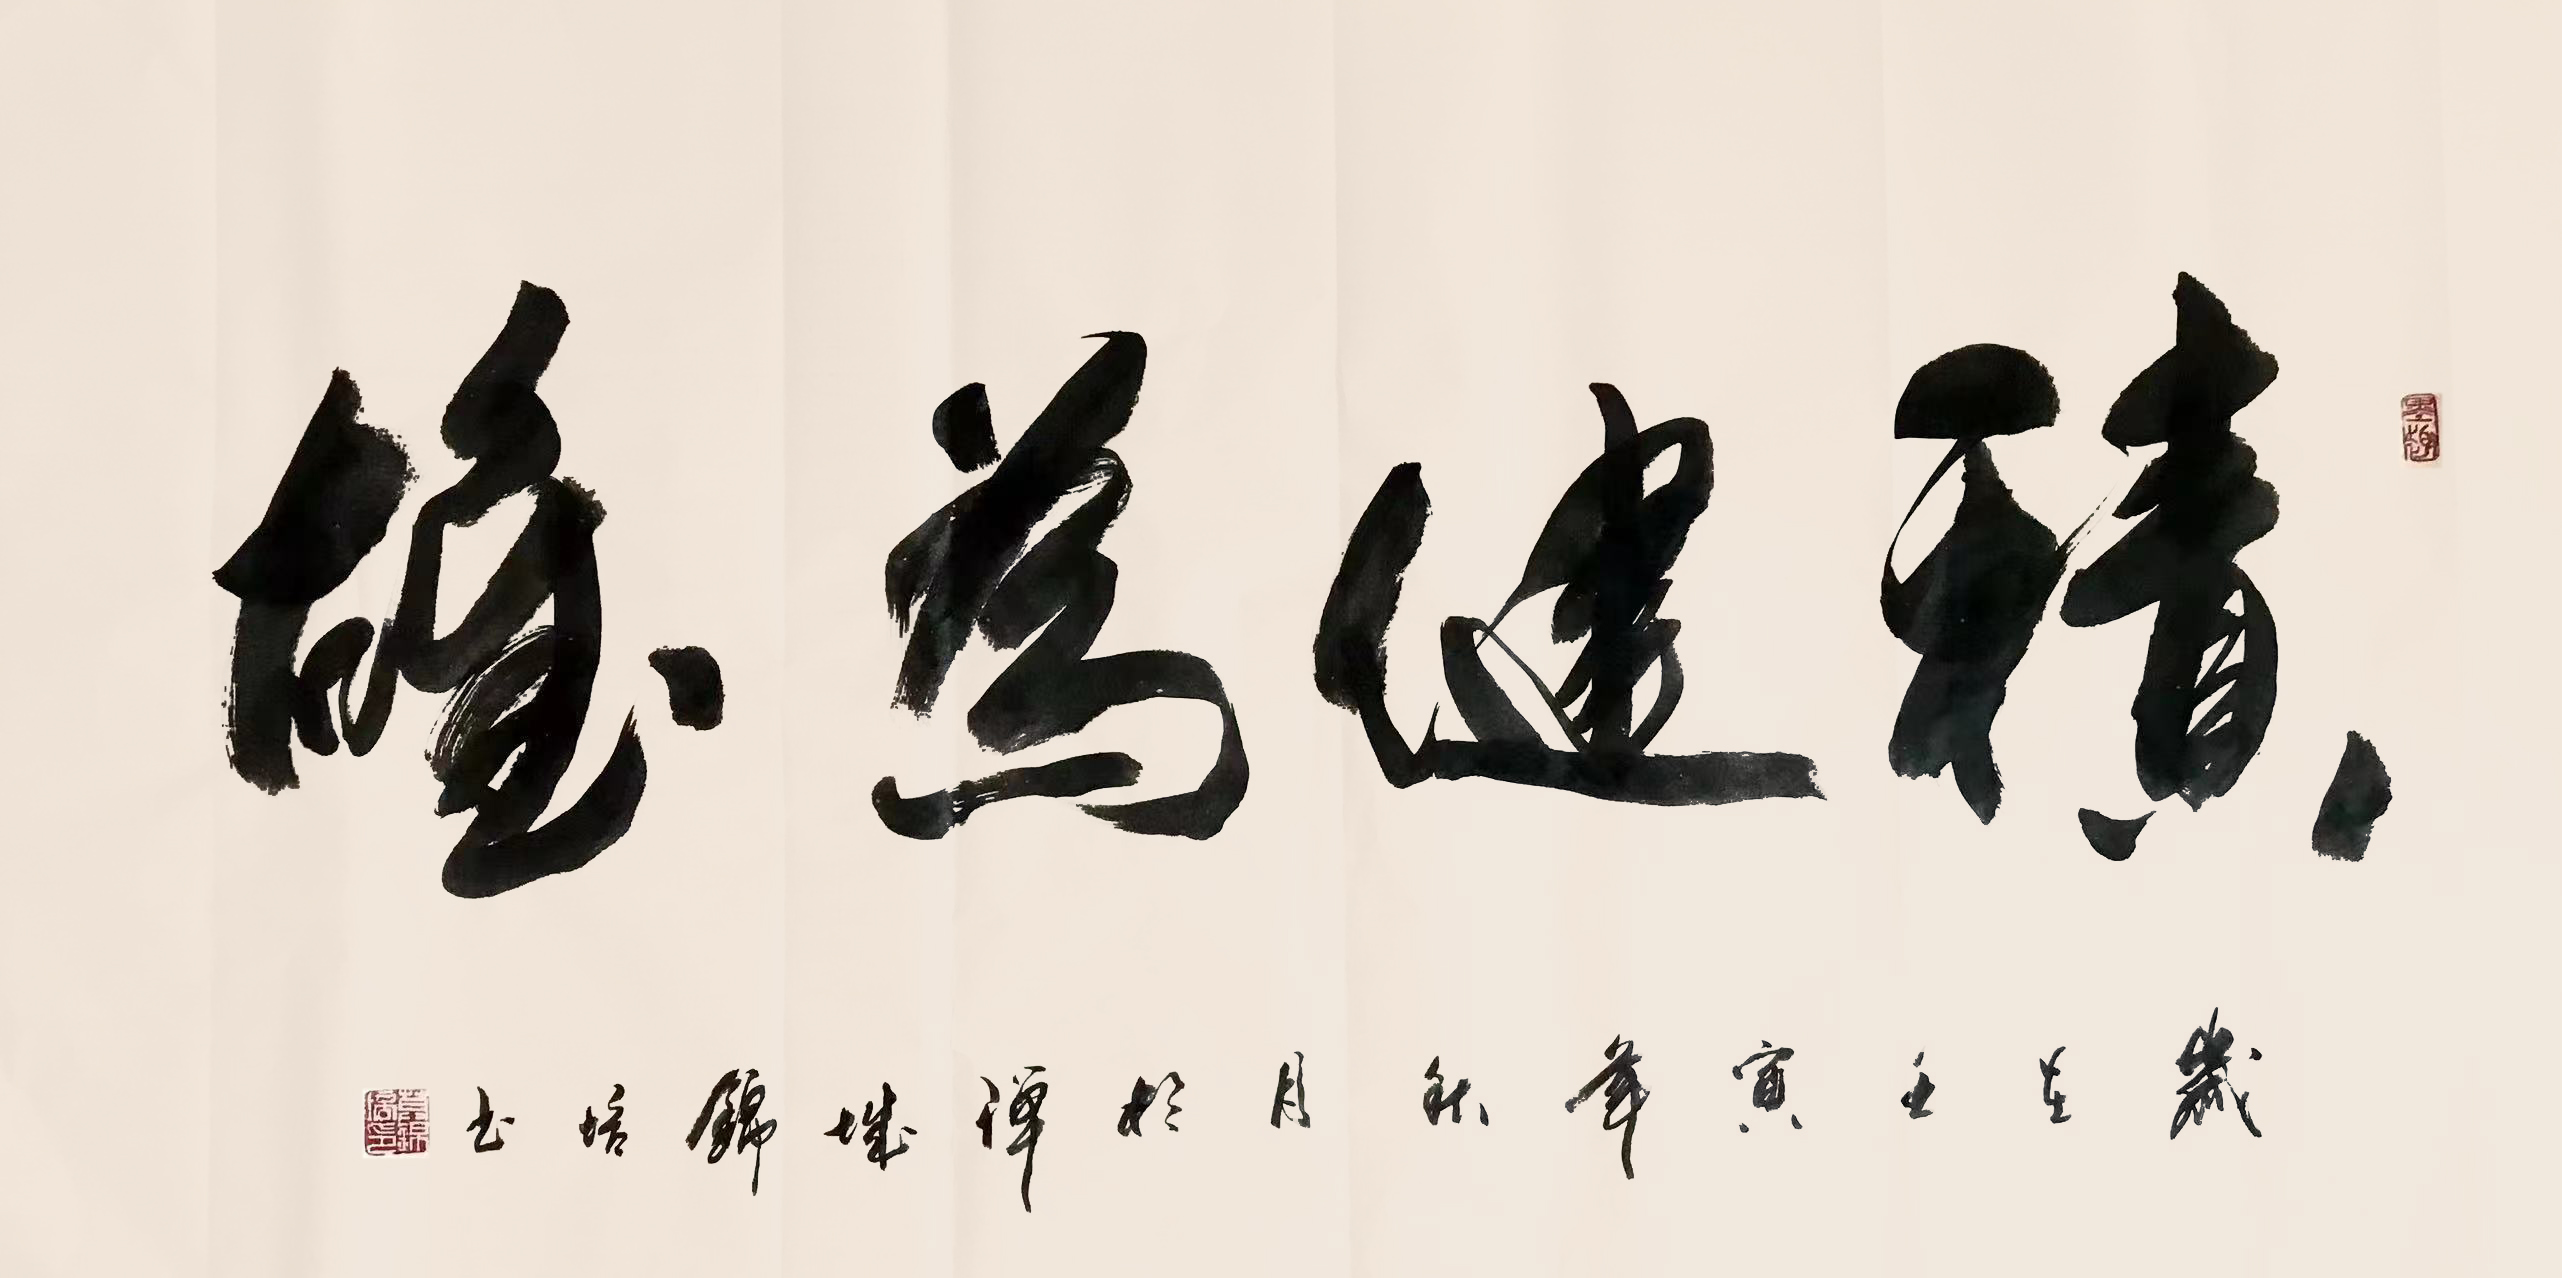 積健為雄
歲在壬寅年秋月於潭城錦培书